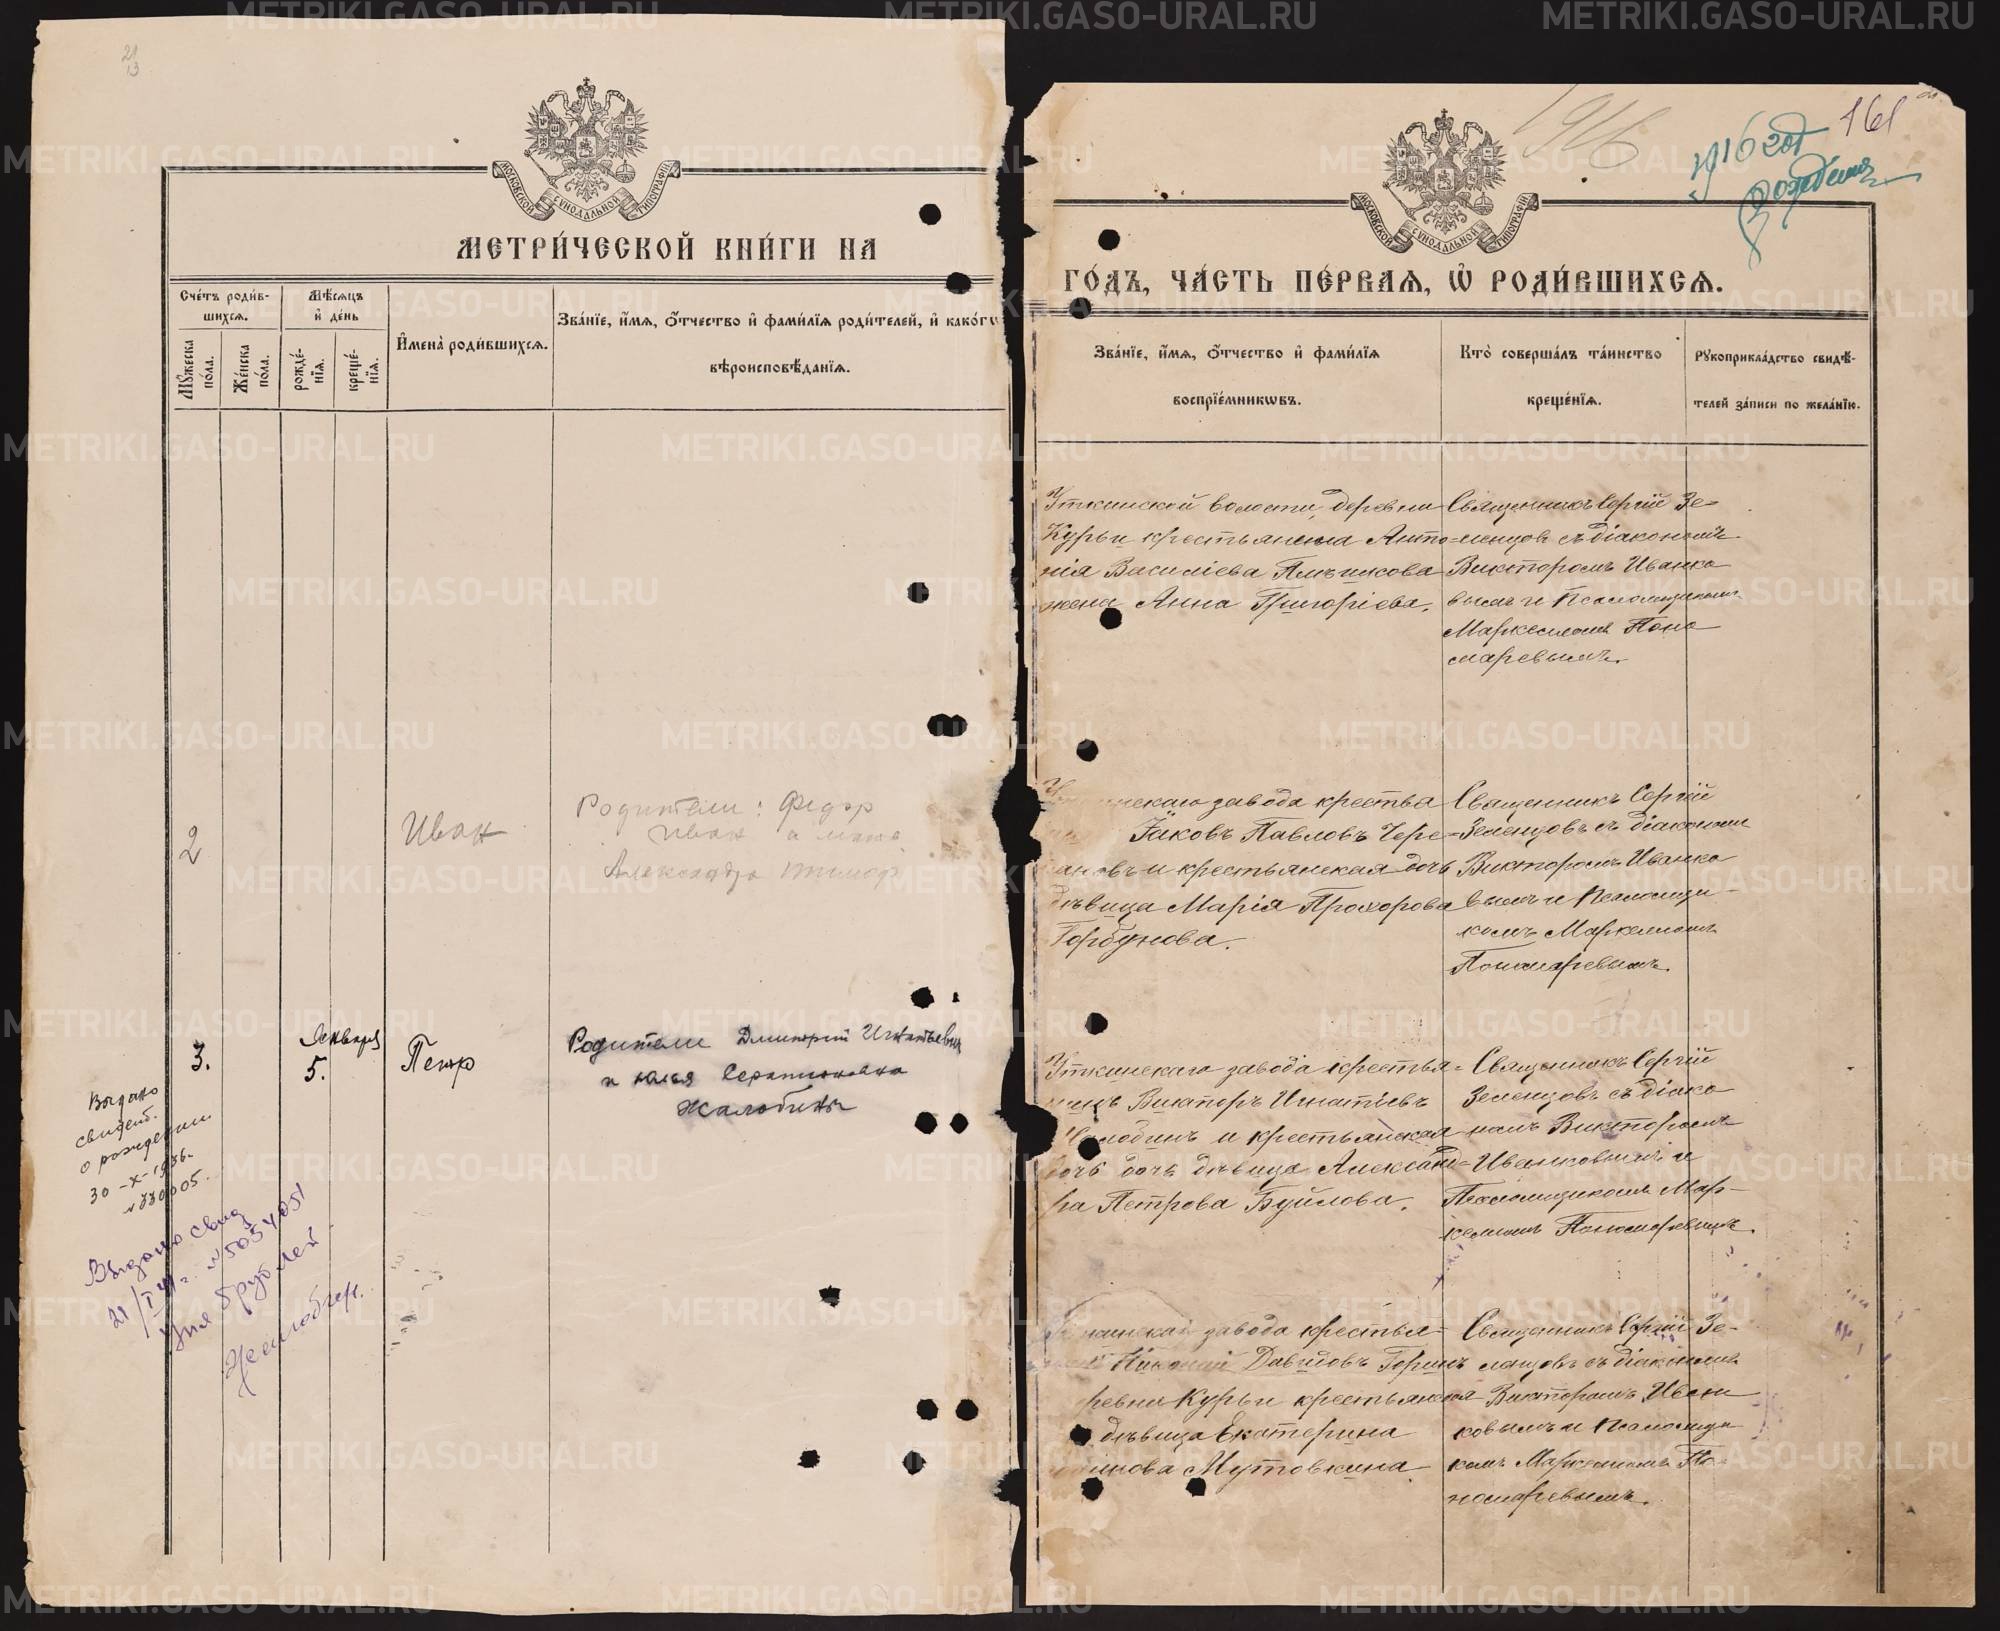 21
13
МОСКОВСКОЙ СѴНОДАЛЬНОЙ ТИПОГРАФІИ
МЕТРИ́ЧЕСКОЙ КНИ́ГИ НА
Сче́тъ роди́в-
шихсѧ.
Мѣ́сѧцъ
и҆ де́нь
И҆мена̀ роди́вшихсѧ.
Зва́нїе, и҆́мѧ, ѻ҆́тчество и҆ фами́лїѧ роди́телей, и҆ како́гѡ
вѣроисповѣ́данїѧ.
Мꙋ́жеска
по́ла.
Же́нска
по́ла.
рожде́-
нїѧ.
креще́-
нїѧ.
2
Иван
Родители: Федор
Иван а мать
Александра
3.
Января
5.
Петр
Родители Дмитрий Игнатьевич
и
Жалобины
Выдано
свидет.
о рождении
30-X-1936г
N 770005.
Выдано свид
21/I 41г. N 5054051
рублей
Жалобин.
1916
1916 год
рождения
161
МОСКОВСКОЙ СѴНОДАЛЬНОЙ ТИПОГРАФІИ
ГО́ДЪ, ЧА́СТЬ ПЕ́РВАѦ, Ѡ҆ РОДИ́ВШИХСѦ.
Зва́нїе, и҆́мѧ, ѻ҆́тчество и҆ фами́лїѧ
воспрїе́мникѡвъ.
Кто̀ соверша́лъ та́инство
креще́нїѧ.
Рꙋкоприкла́дство свидѣ́-
телей за́писи по жела́нїю.
Уткинской волости, деревни
Курьи крестьянина Анто-
нія Василіева Плѣшкова
жена Анна Григоріева.
Священникъ Сергій Зе-
ленцовъ съ діакономъ
Викторомъ Иванко
вымъ и Псаломщикомъ
Маркелломъ Поно
маревымъ.
Уткинскаго завода крестья
Іаковъ Павловъ Чере-
ановъ и крестьянская дочь
дѣвица Марія Прохорова
Горбунова.
Священникъ Сергій
Зеленцовъ съ діакономъ
Викторомъ Иванко
вымъ и Псаломщи-
комъ Маркелломъ
Пономаревымъ.
Уткинскаго завода крестья-
нинъ Викторъ Игнатіевъ
Жалобинъ и крестьянская
дочь дочь дѣвица Александ-
ра Петрова Буйлова.
Священникъ Сергій
Зеленцовъ съ діако
номъ Викторомъ
Иванковымъ и
Псаломщикомъ Мар-
келломъ Пономаревымъ.
Уткинскаго завода крестья-
Николай Давидовъ Горинъ
деревни Курьи крестьянская
дѣвица Екатерина
Мутовкина.
Священникъ Сергій Зе-
ленцовъ съ діакономъ
Викторомъ Иван
ковымъ и Псаломщи
комъ Маркелломъ По-
номаревымъ.
METRIKI.GASO-URAL.RU